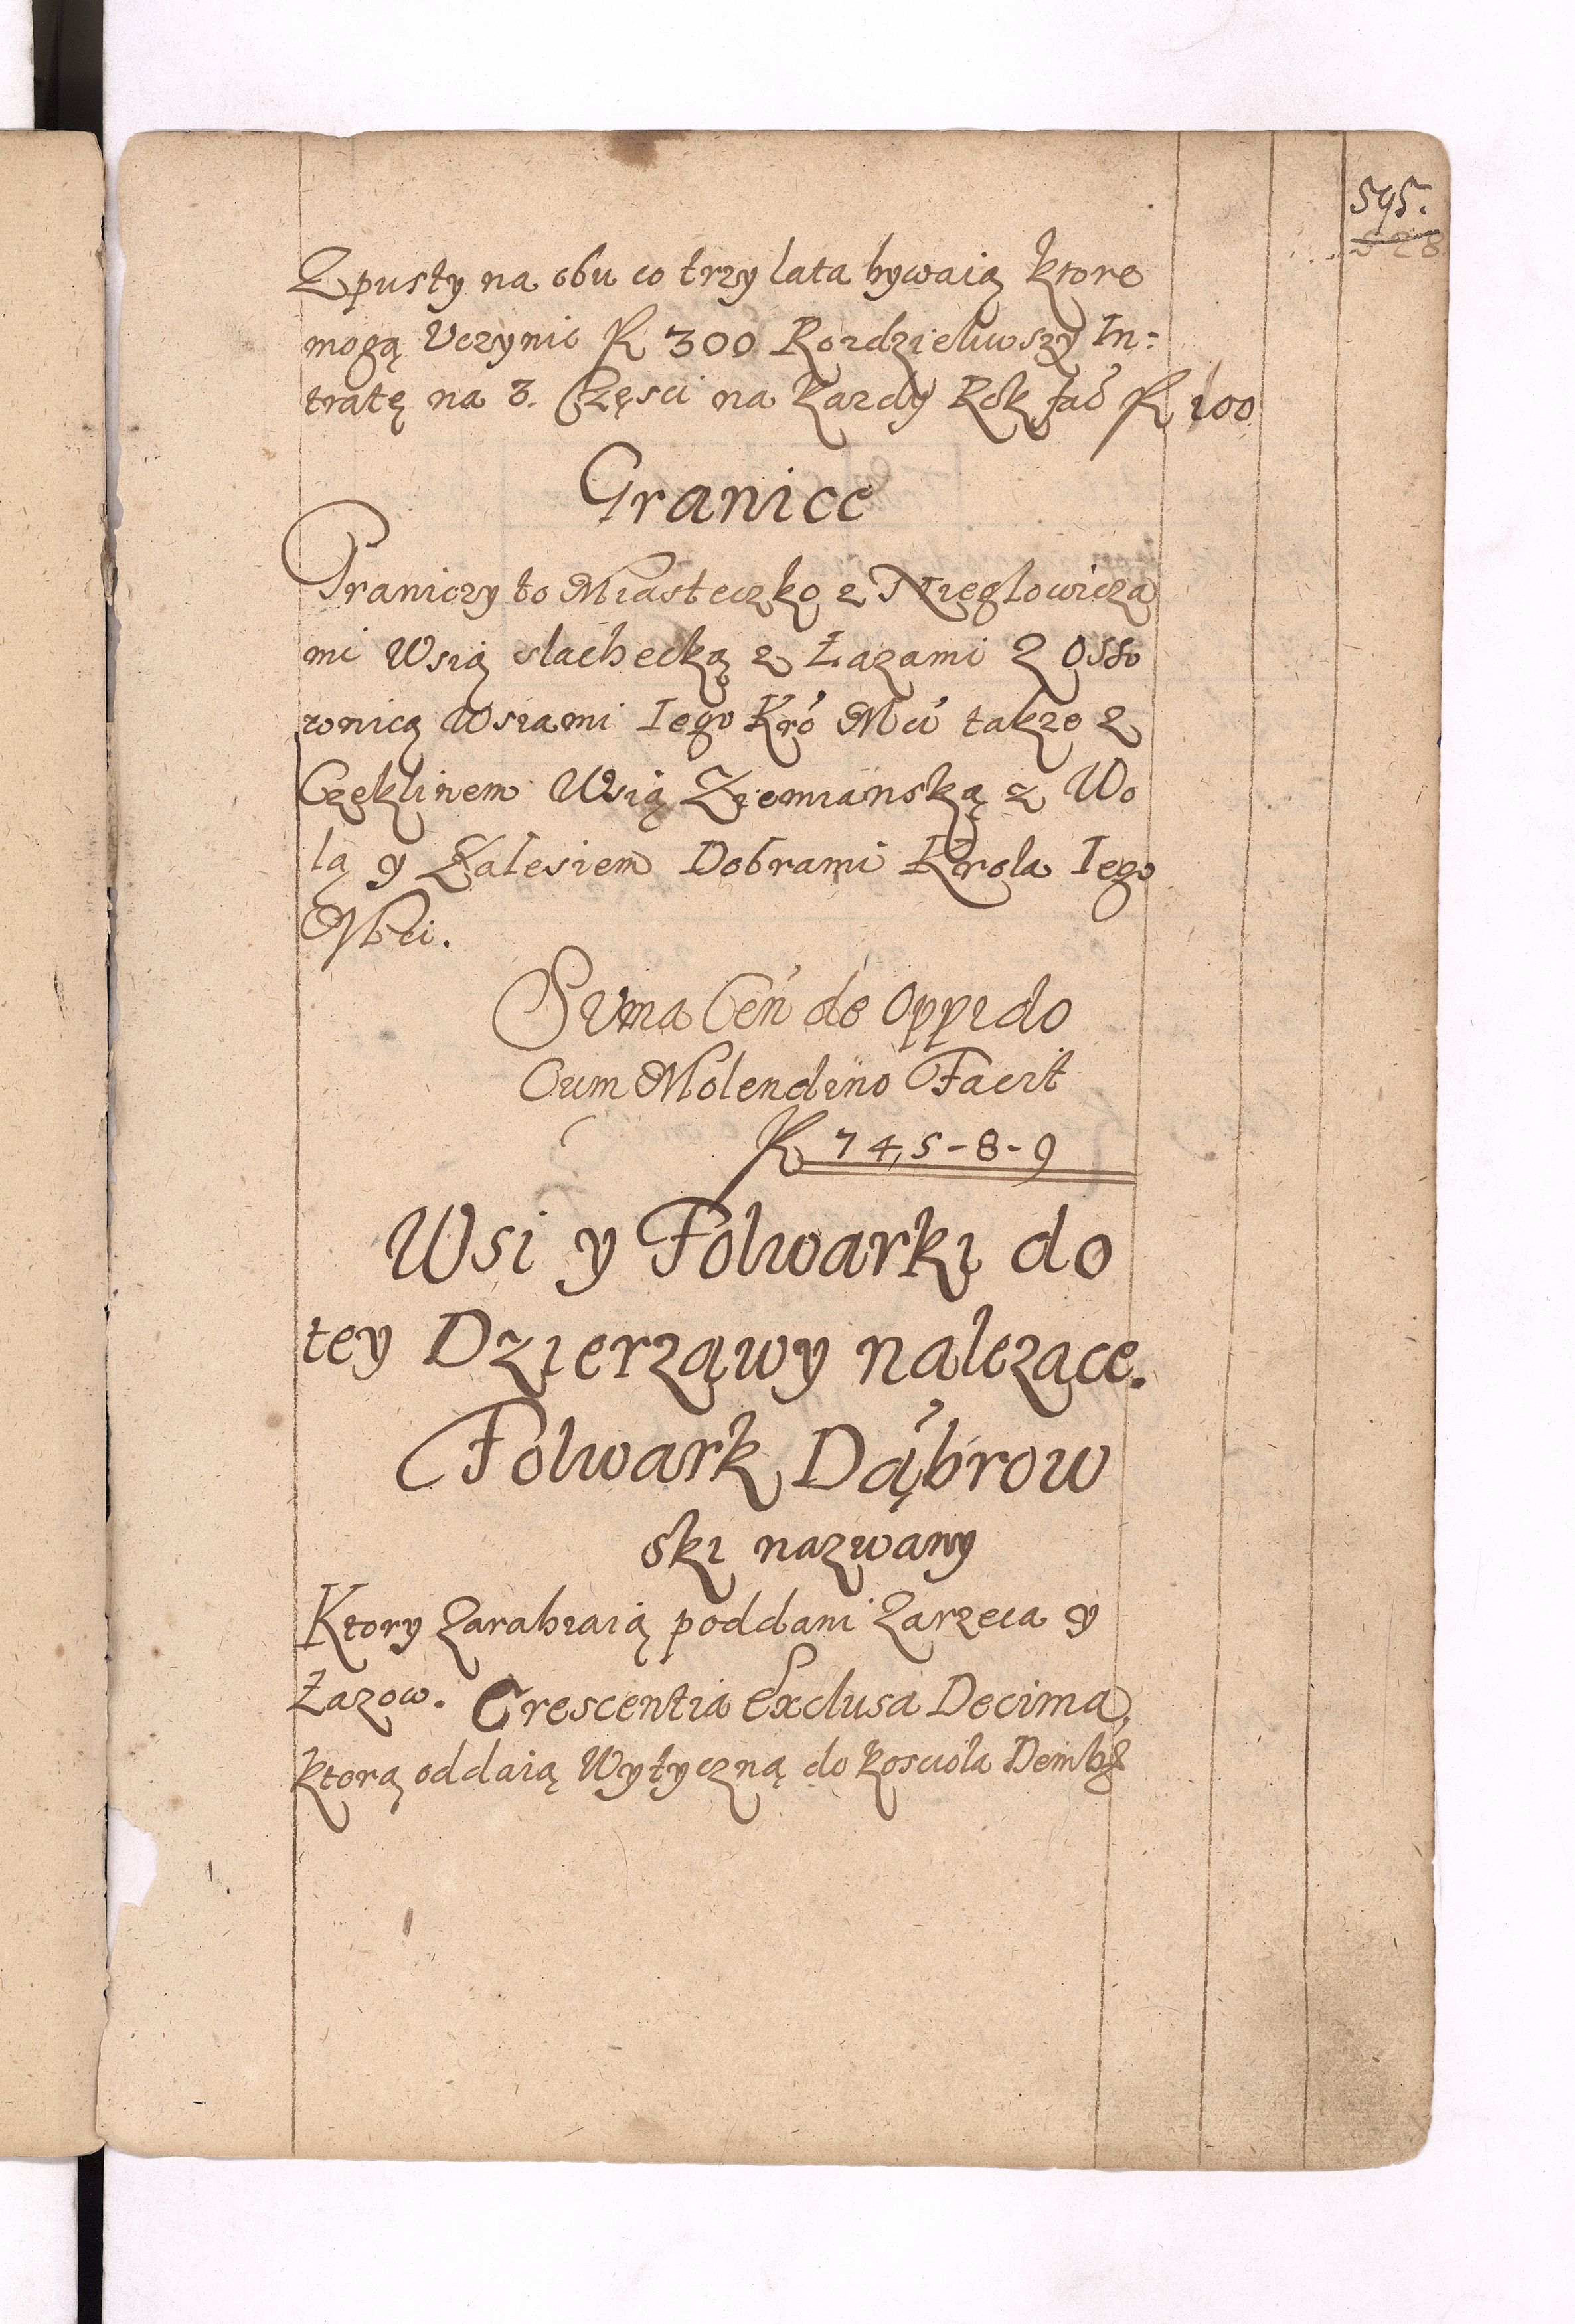 595.
528
Zpusty na obu co trzy lata bywaią ktore
mogą Uczynic fl 300 Rozdzieliwszy In:
tratę na 3. Częsci na kazdy Rok fać fl 100
Granice
Graniczy to Miasteczko z Nieglowicza
mi Wsią slachecką z Łazami z Osso
wnicą Wsiami Iego Kró Mći także z
Czeklinem Wsią Ziemianską z Wo
lą y Zalesiem Dobrami Krola Iego
Mći.
Suma Cen̄ de Oppido
Cum Molendino Facit
fl 745-8-9
Wsi y Folwarki do
tey Dzierząwy nalezące.
Folwark Dąbrow
ski nazwany
Ktory Zarabiaią poddani Zarzecza y
Łazow. Crescentia Exclusa Decima,
ktorą oddaią Wytyczną do kosciola